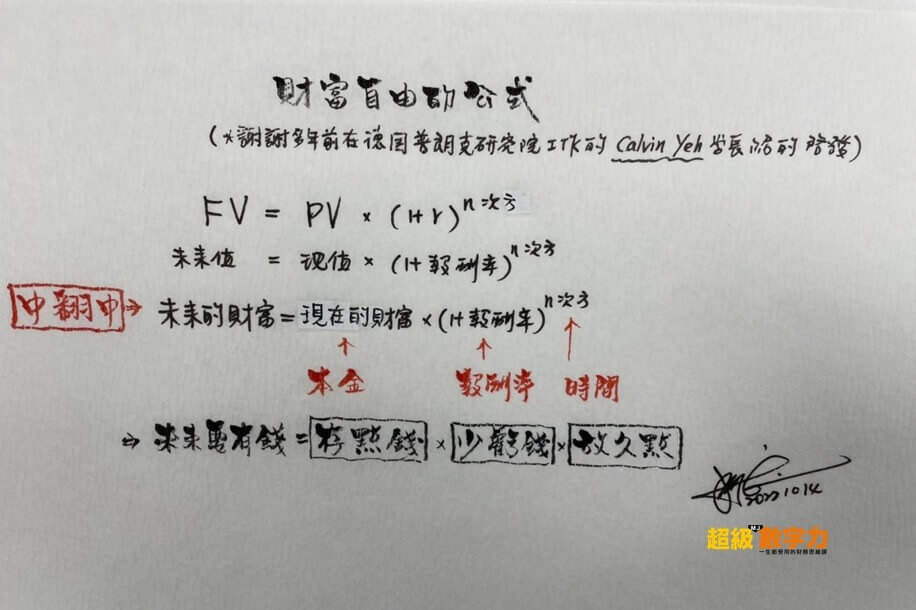 財富自由的公式
(*謝謝多年前在德国普朗克研究院工作的 Calvin Yeh 学長給的啓發)
FV = PV × (1+r)n次方
未来值 = 現值 × (1+報酬率)n次方
中翻中 → 未来的財富=現在的財富×(1+報酬率)n次方
↑ ↑ ↑
本金 報酬率 時間
⇒ 未来要有錢=存點錢×少虧錢×放久點
2022 10 14
超級MJ數字力
一生都受用的財務思維課